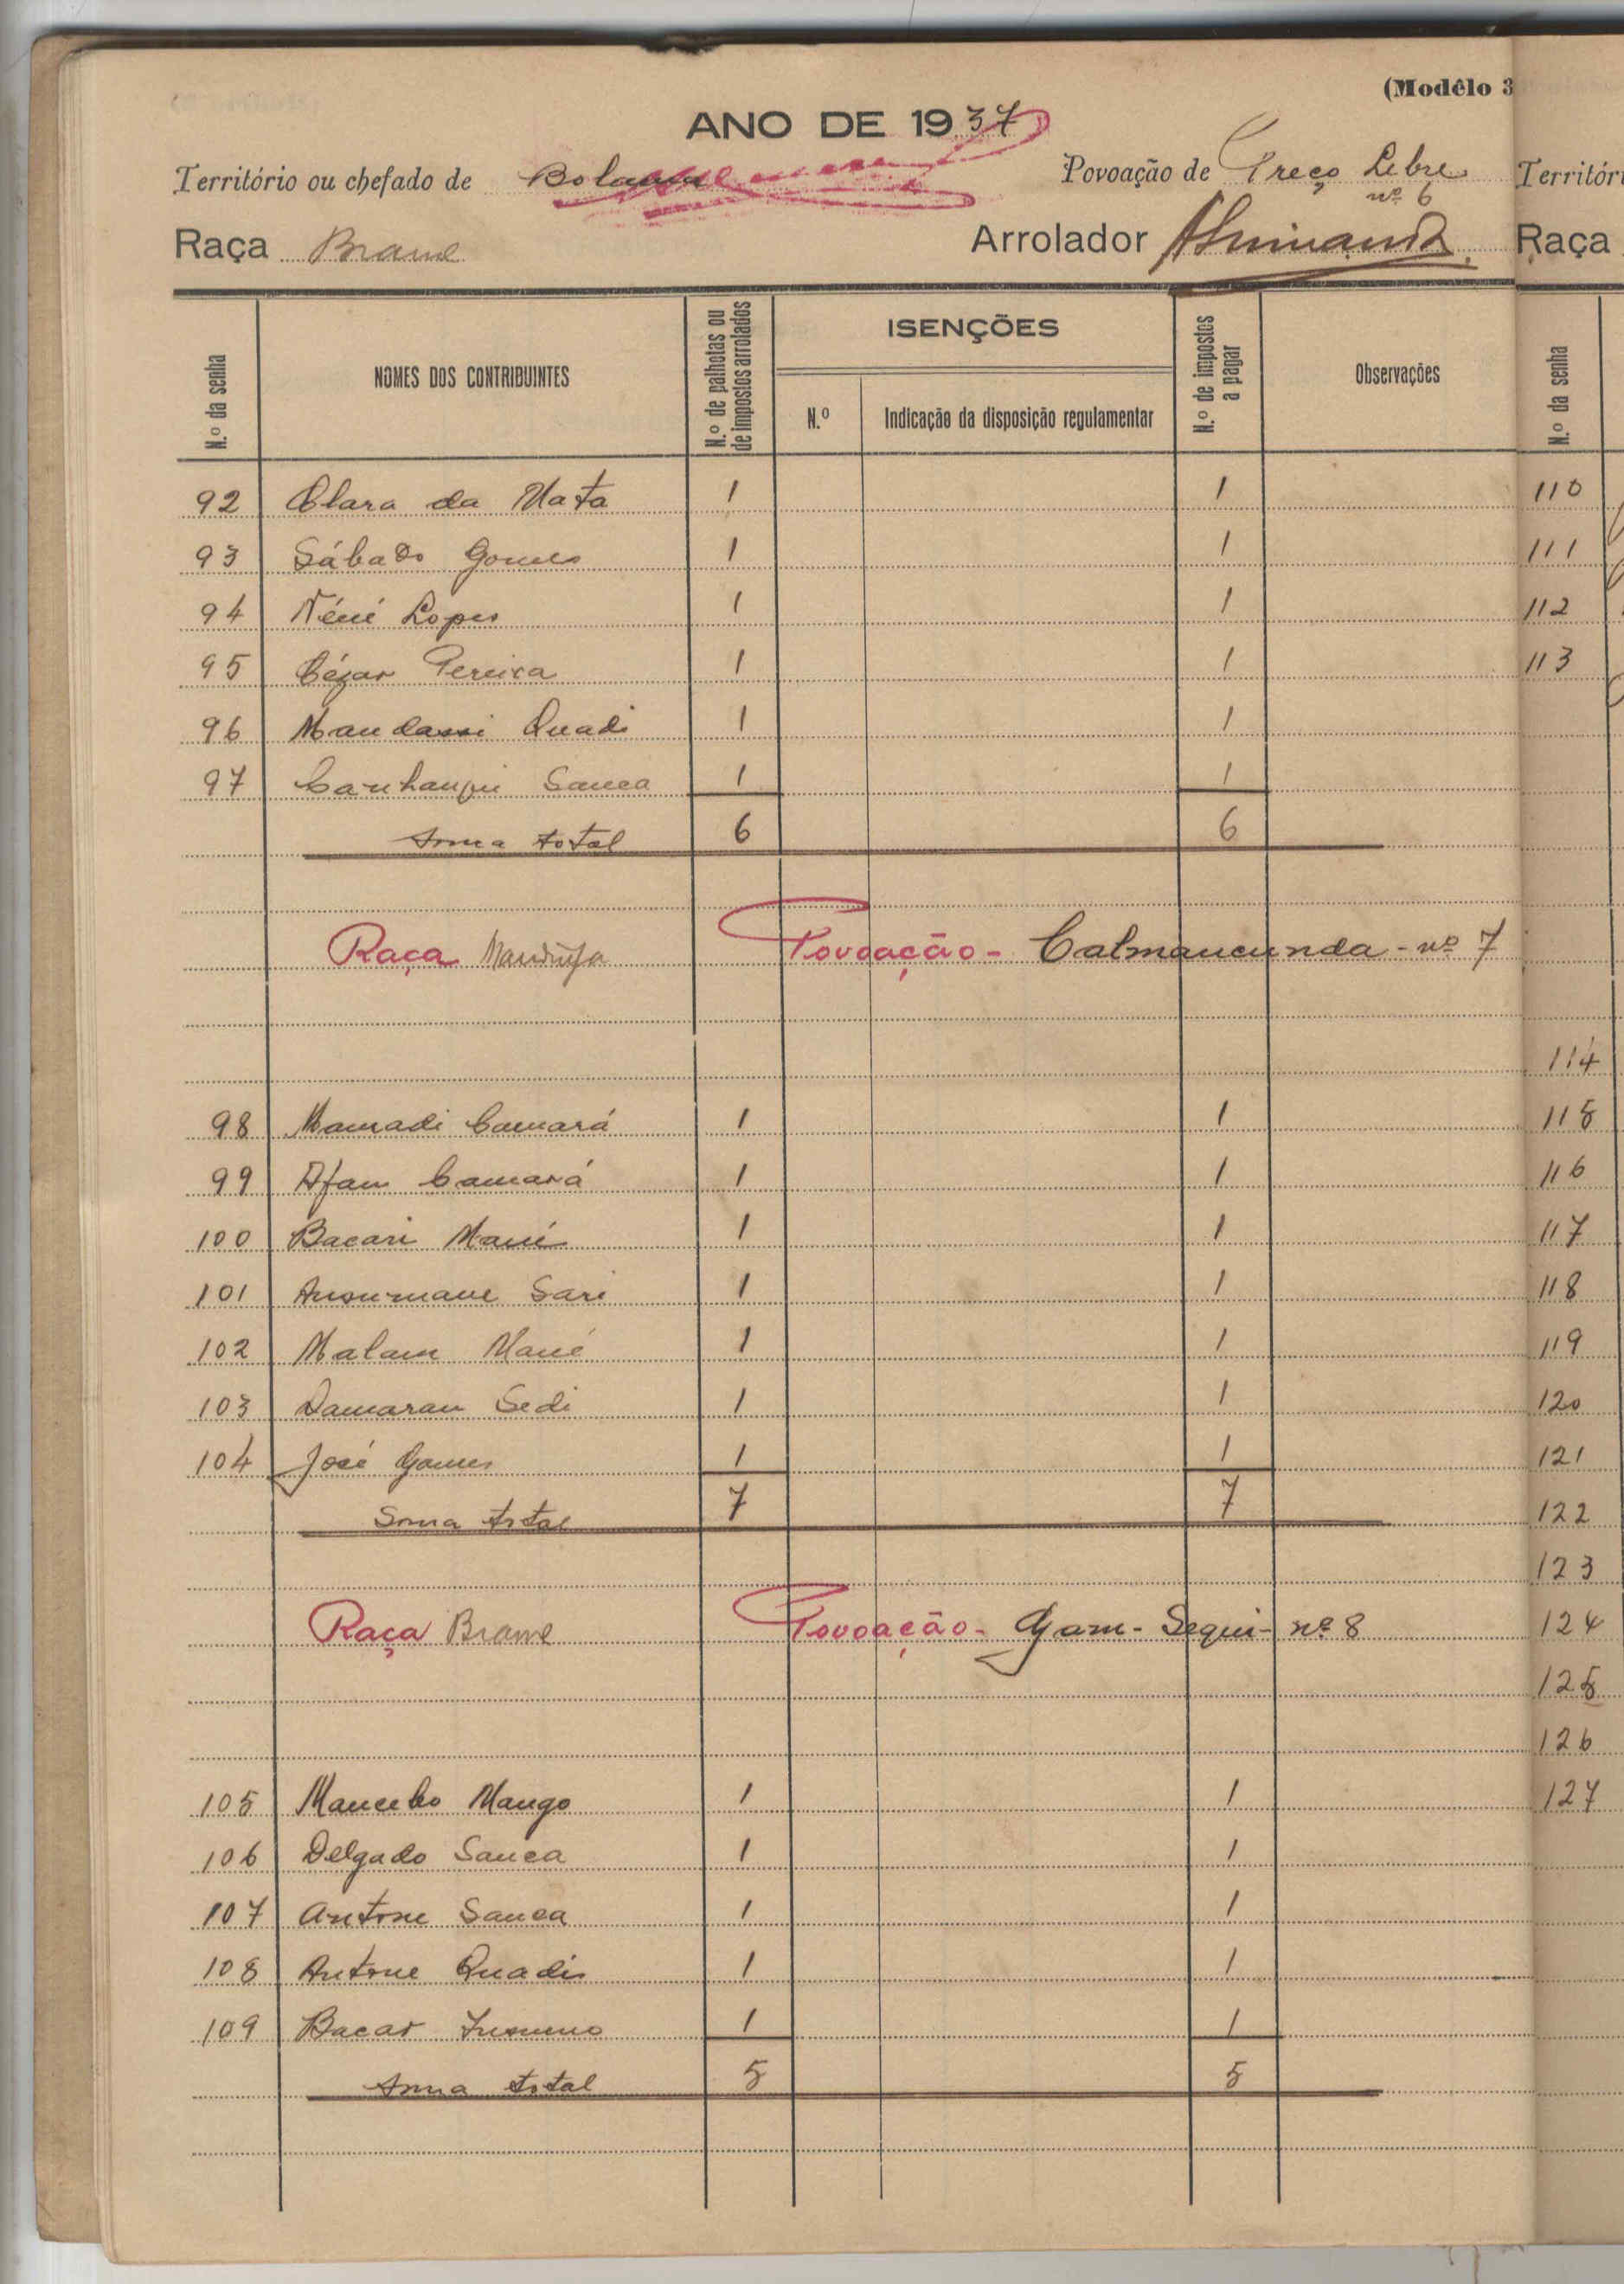 (Modêlo 3
ANO DE 1937
Território ou chefado de Bolama Povoação de Preço Lebre
nº 6
Raça Brame Arrolador
N.º da senha NOMES DOS CONTRIBUINTES N.º de palhotas ou de impostos arrolados ISENÇÕES N.º de impostos a pagar Observações
N.º Indicação da disposição regulamentar
92 Clara da Mata 1 1
93 Sábado Gomes 1 1
94 Néné Lopes 1 1
95 Cézar Pereira 1 1
96 Mandassi Quadi 1 1
97 Sanca 1 1
Soma total 6 6
Raça Mandinga Povoação - Calmancunda - nº 7
98 Mamadi Camará 1 1
99 Afam Camará 1 1
100 Bacari Mané 1 1
101 Ansumane Sari 1 1
102 Malam Mané 1 1
103 Damaran Sedi 1 1
104 José Gomes 1 1
Soma total 7 7
Raça Brame Povoação - Gam - Sequi - nº 8
105 Mancebo Mango 1 1
106 Delgado Sanca 1 1
107 Antone Sanca 1 1
108 Antone Quadi 1 1
109 Bacar 1 1
Soma total 5 5
Territóri
Raça
N.º da senha
110
111
112
113
114
115
116
117
118
119
120
121
122
123
124
125
126
127